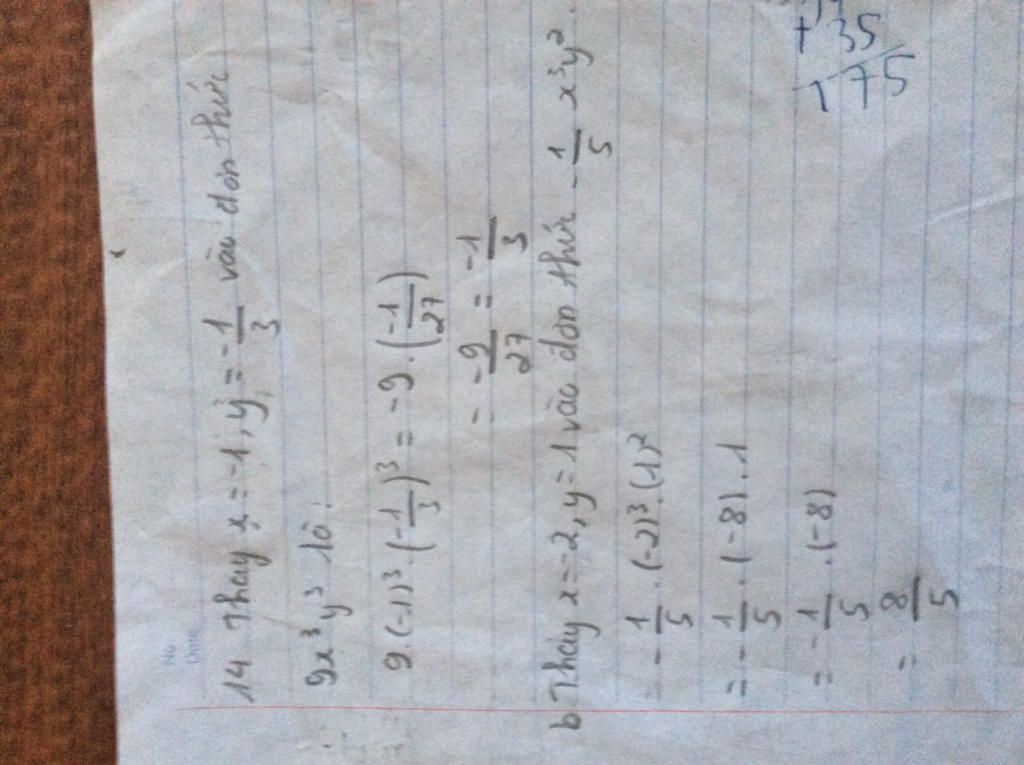 No
Date
14 Thay x = -1, y = -1/3 vào đơn thức
9x³y³ là:
9.(-1)³.(-1/3)³ = -9.(-1/27)
= -9/27 = -1/3
b Thay x = -2, y = 1 vào đơn thức -1/5 x³y².
-1/5.(-2)³.(1)²
= -1/5.(-8).1
= -1/5.(-8)
= 8/5
+ 35
175